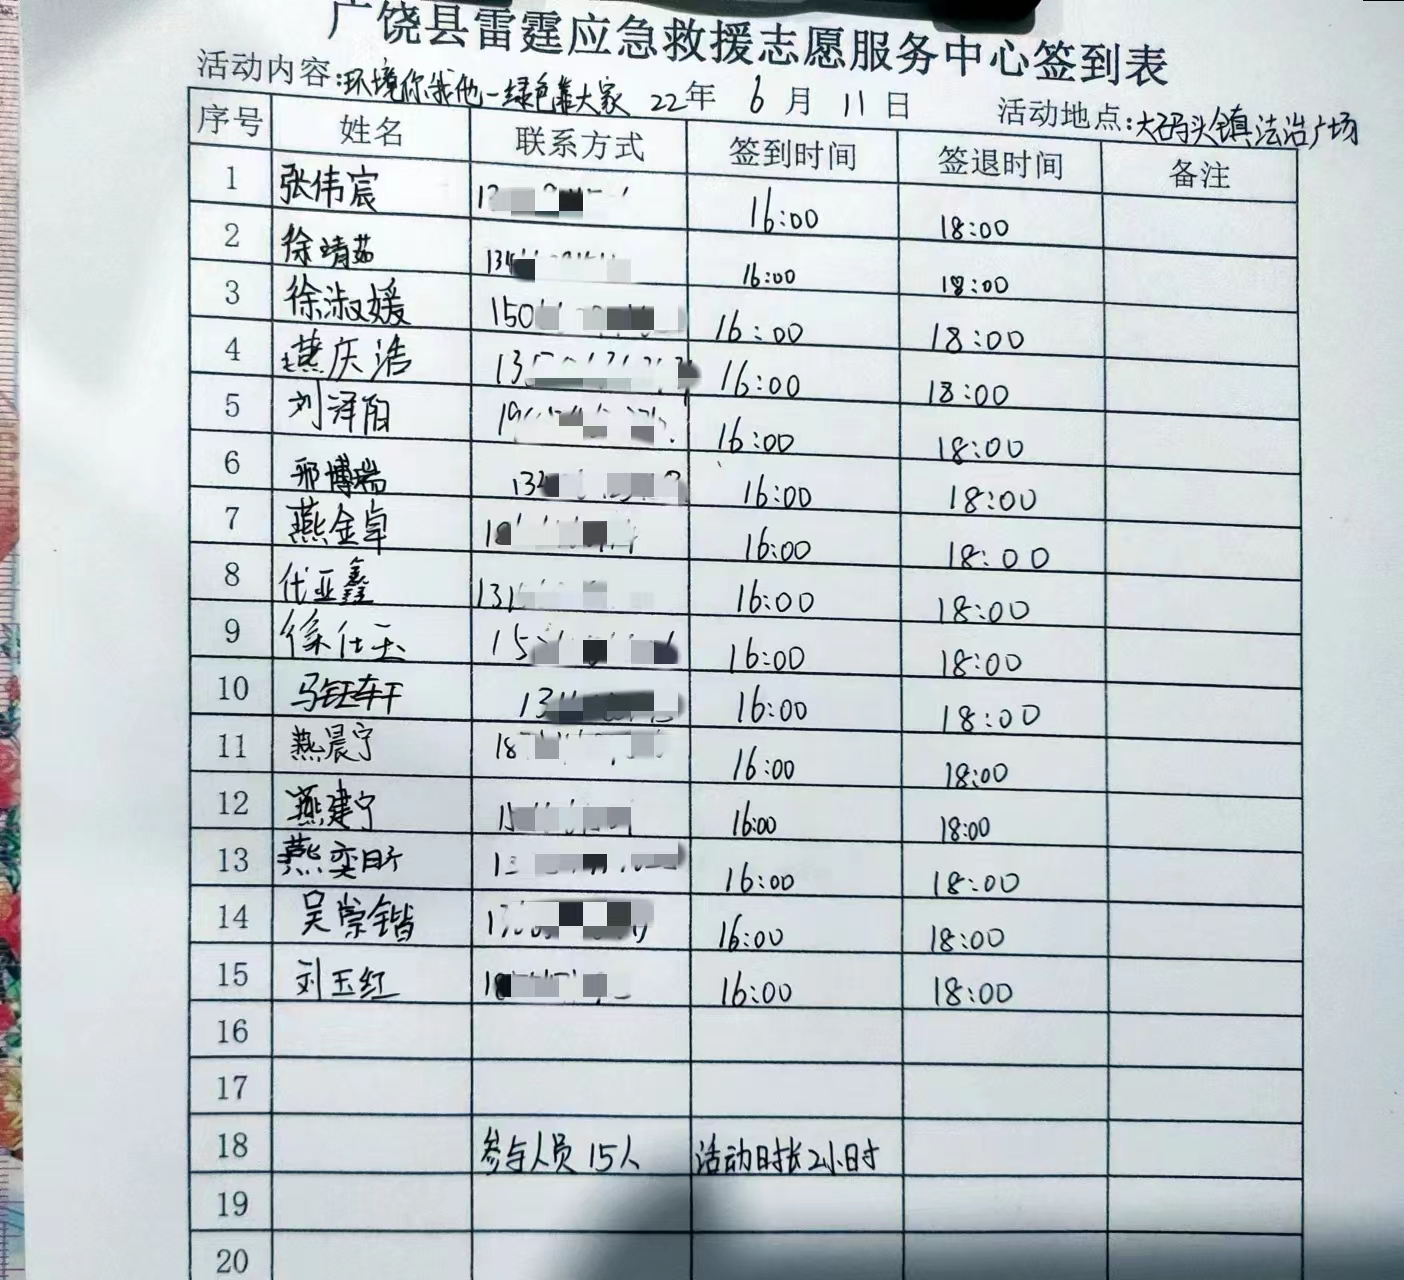 广饶县雷霆应急救援志愿服务中心签到表
活动内容:环境你我他一绿色靠大家 22年 6月 11日 活动地点:大码头镇法治广场
序号 姓名 联系方式 签到时间 签退时间 备注
1 张伟宸 16:00 18:00
2 徐靖茹 13 16:00 18:00
3 徐淑媛 150 16:00 18:00
4 燕庆浩 13 16:00 18:00
5 刘泽阳 19 16:00 18:00
6 邢博瑞 13 16:00 18:00
7 燕金卓 16:00 18:00
8 代亚鑫 131 16:00 18:00
9 徐仕玉 15 16:00 18:00
10 马钰轩 13 16:00 18:00
11 燕晨宁 187 16:00 18:00
12 燕建宁 16:00 18:00
13 燕奕昕 13 16:00 18:00
14 吴崇锴 16:00 18:00
15 刘玉红 16:00 18:00
16
17
18 参与人员15人 活动时长2小时
19
20